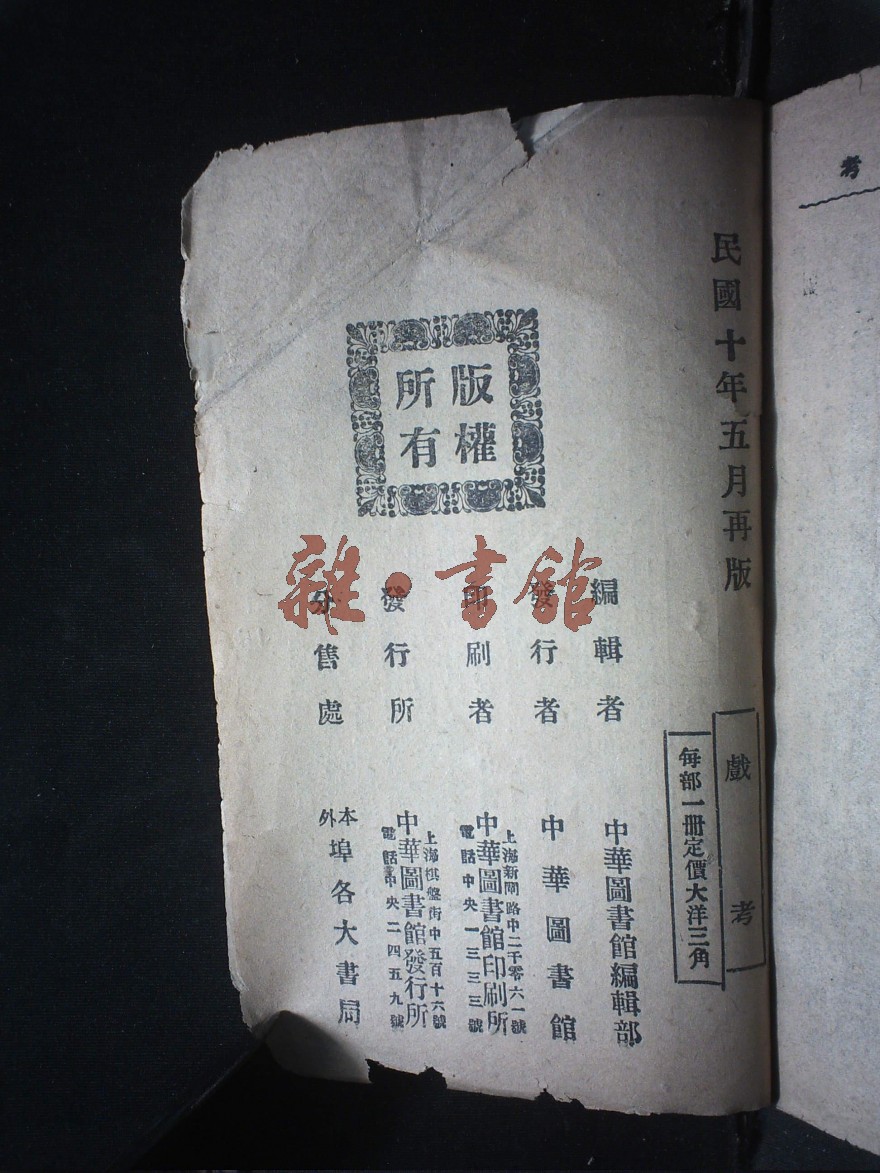 考
民國十年五月再版
戲考
每部一冊定價大洋三角
版權
所有
編輯者 中華圖書館編輯部
發行者 中華圖書館
印刷者 上海新閘路中二千零六一號
中華圖書館印刷所
電話中央一三三三號
發行所 上海棋盤街中五百十六號
中華圖書館發行所
電話中央二四五九號
分售處 本外埠各大書局
雜·書館